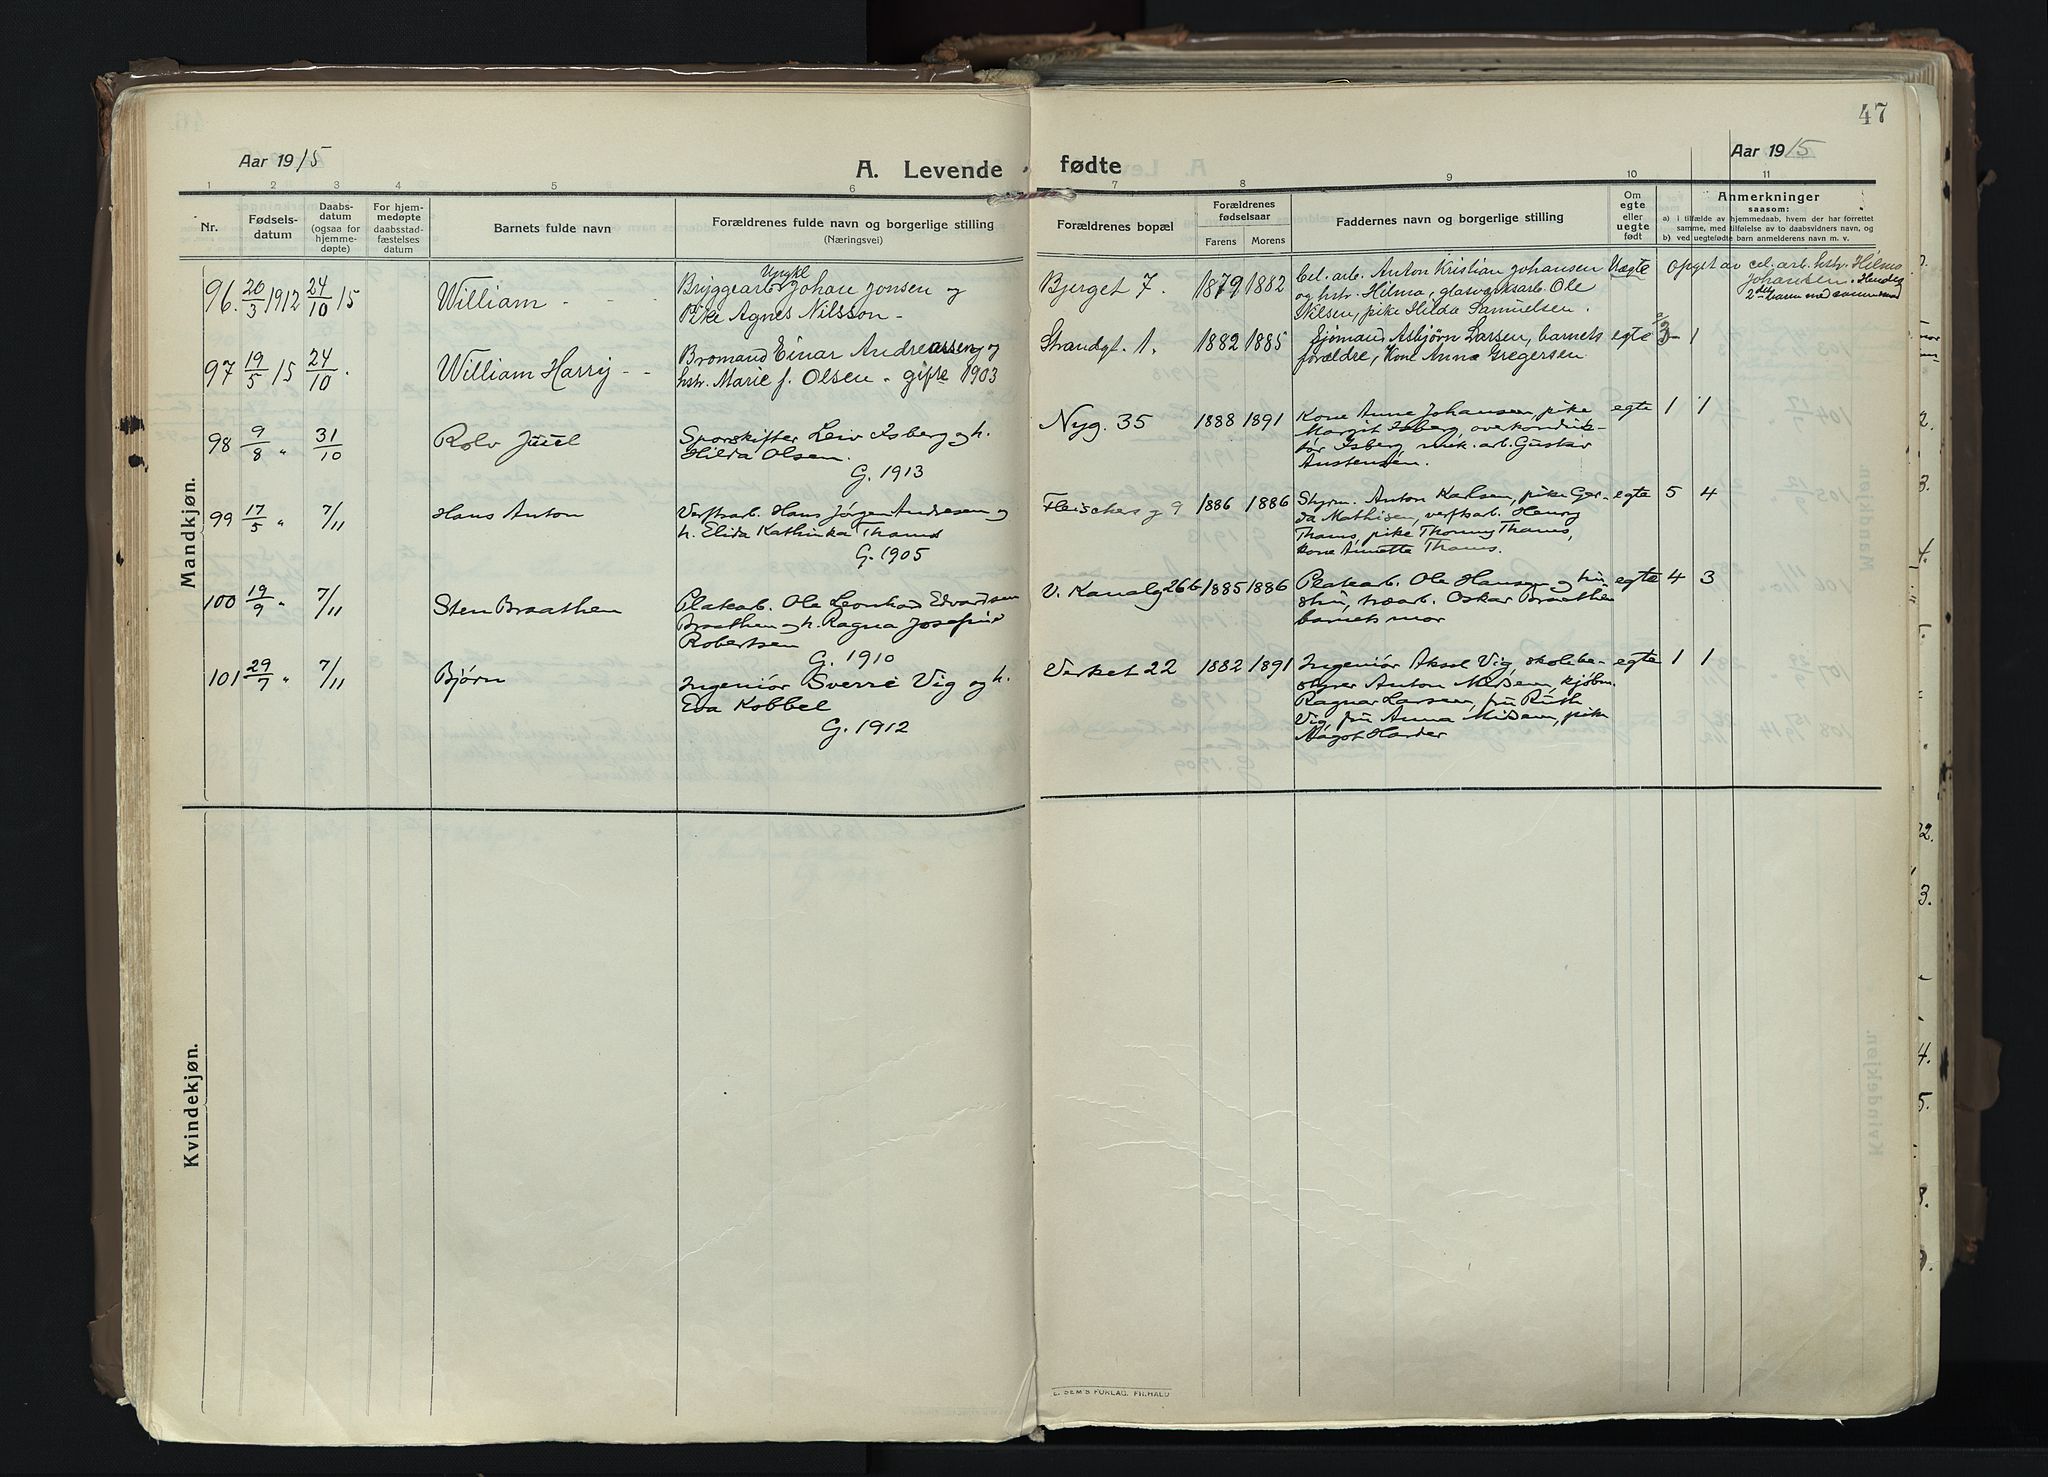 47
Aar 1915
A. Levende fødte
Aar 1915
1 2 3 4 5 6 7 8 9 10 11
Nr.
Fødsels-
datum
Daabs-
datum
(ogsaa for
hjemme-
døpte)
For hjem-
medøpte
daabsstad-
fæstelses
datum
Barnets fulde navn
Forældrenes fulde navn og borgerlige stilling
(Næringsvei)
Forældrenes bopæl
Forældrenes
fødselsaar
Farens Morens
Faddernes navn og borgerlige stilling
Om
egte
eller
uegte
født
Anmerkninger
saasom:
a) i tilfælde av hjemmedaab, hvem der har forrettet
samme, med tilføielse av to daabsvidners navn, og
b) ved uegtefødte barn anmelderens navn m. v.
Mandkjøn.
96. 20/3 1912 24/10 15 William
Ungkl
Bryggearb Johan Jonsen og
Pike Agnes Nilsson
Bjerget 7. 1879 1882
Cel. arb. Anton Kristian Johansen
og hstr. Hilma, glasverksarb. Ole
Nilsen, pike Hilda Samuelsen.
Uegte
Opgit av cel. arb. hstr. Hilma
Johansen.
2det barn med samme
97 19/5 15 24/10. William Harry
Bromand Einar Andreassen og
hstr. Marie f. Olsen. gifte 1903
Strandgt. 1. 1882 1885
Sjømand Asbjørn Larsen, barnets
forældre, Kone Anna Gregersen
egte 3 1
98 9/8 " 31/10 Rolv Juul
Sporskifter Leiv Isberg og h.
Hilda Olsen.
G. 1913
Nyg. 35 1888 1891
Kone Anna Johansen, pike
Margit Isberg, overkonduk-
tør Isberg, mek. arb. Gustav
Austensen.
egte 1 1
99 17/5 " 7/11 Hans Anton
Verftsarb. Hans Jørgen Andresen og
h. Elida Kathinka Thams
G. 1905
Fleischers g 9 1886 1886
Styrm. Anton Karlsen, pike Ger-
da Mathisen, verftsarb. Henry
Thams, pike Thomny Thams,
kone Annette Thams.
egte 5 4
100 19/9 " 7/11 Sten Braathen
Platearb. Ole Leonhard Edvardsen
Braathen og h. Ragna Josefine
Robertsen
G. 1910
V. Kanalg 26b 1885 1886
Platearb. Ole Hansen og hu-
stru, træarb. Oskar Braathen
barnets mor
egte 4 3
101 29/7 " 7/11 Bjørn
Ingeniør Sverre Vig og h.
Eva Kobbel
G. 1912
Verket 22 1882 1891
Ingeniør Aksel Vig, skolebe-
styrer Anton Nilsen, kjøbm.
Ragnar Larsen, fru Ruth
Vig, fru Anna Nilsen, pike
Magot Harder
egte 1 1
Kvindekjøn.
E. SEM'S FORLAG, FR.HALD